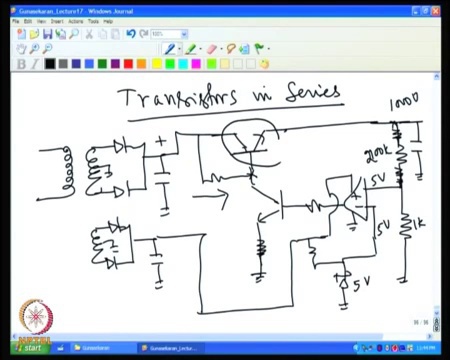 Gunasekaran_Lecture17 - Windows Journal
File Edit View Insert Actions Tools Help
Transistors in Series
1000V
200k
5V
5V
1k
5V
start
Gunasekaran
Gunasekaran_Lectu...